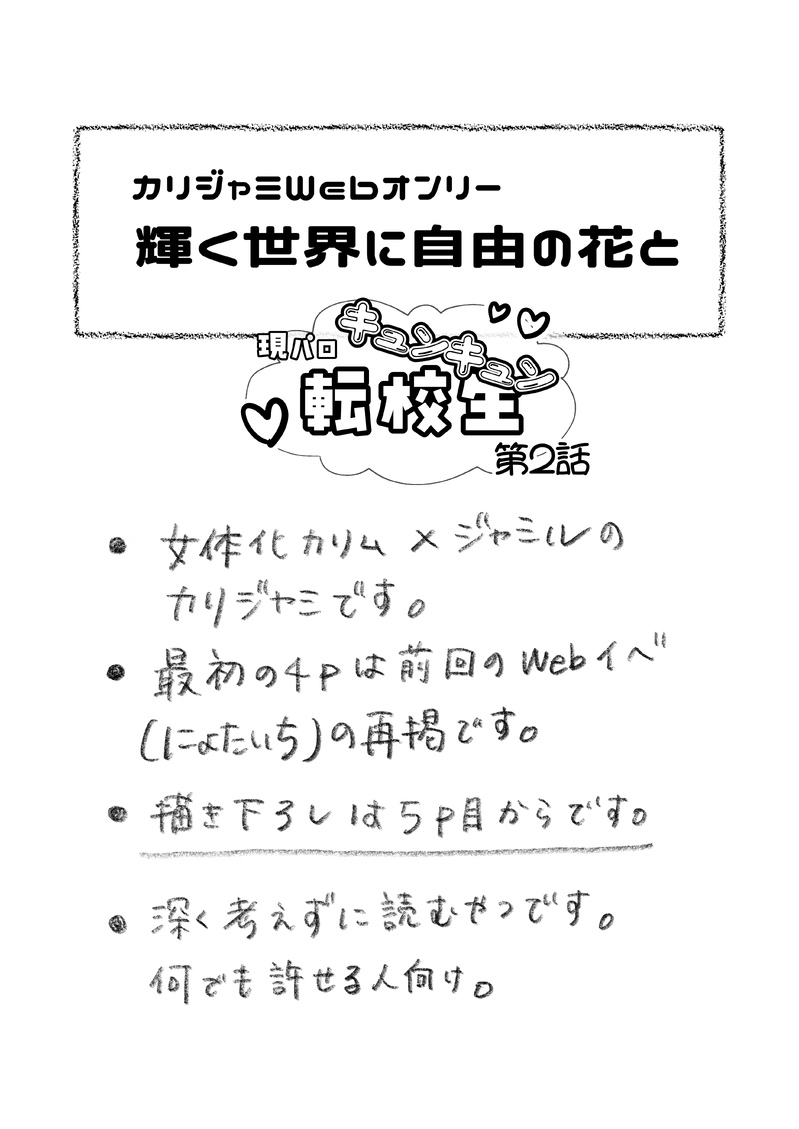 カリジャミWebオンリー
輝く世界に自由の花と
現パロ
キュンキュン
転校生
第2話
● 女体化カリム×ジャミルの
カリジャミです。
● 最初の4pは前回のWebイベ
(にょたいち)の再掲です。
● 描き下ろしは5p目からです。
● 深く考えずに読むやつです。
何でも許せる人向け。